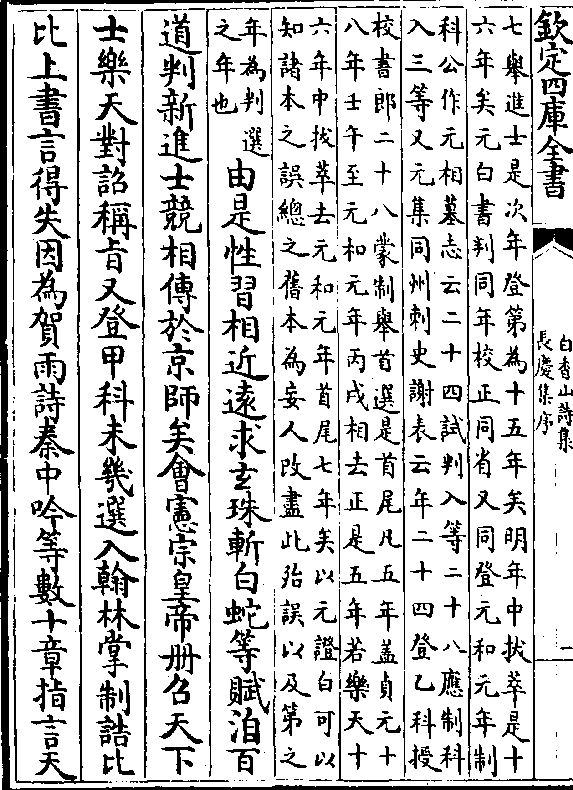 欽定四庫全書
白香山詩集
長慶集序
二
七舉進士是次年登第為十五年矣明年中拔萃是十
六年矣元白書判同年校正同省又同登元和元年制
科公作元相墓志云二十四試判入等二十八應制科
入三等又元集同州刺史謝表云年二十四登乙科授
校書郎二十八蒙制舉首選是首尾凡五年盖貞元十
八年壬午至元和元年丙戌相去正是五年若樂天十
六年中拔萃去元和元年首尾七年矣以元證白可以
知諸本之誤總之舊本為妄人改盡此殆誤以及第之
年為判選
之年也
由是性習相近遠求玄珠斬白蛇等賦洎百
道判新進士競相傳於京師矣會憲宗皇帝册召天下
士樂天對詔稱旨又登甲科未幾選入翰林掌制誥比
比上書言得失因為賀雨詩秦中吟等數十章指言天